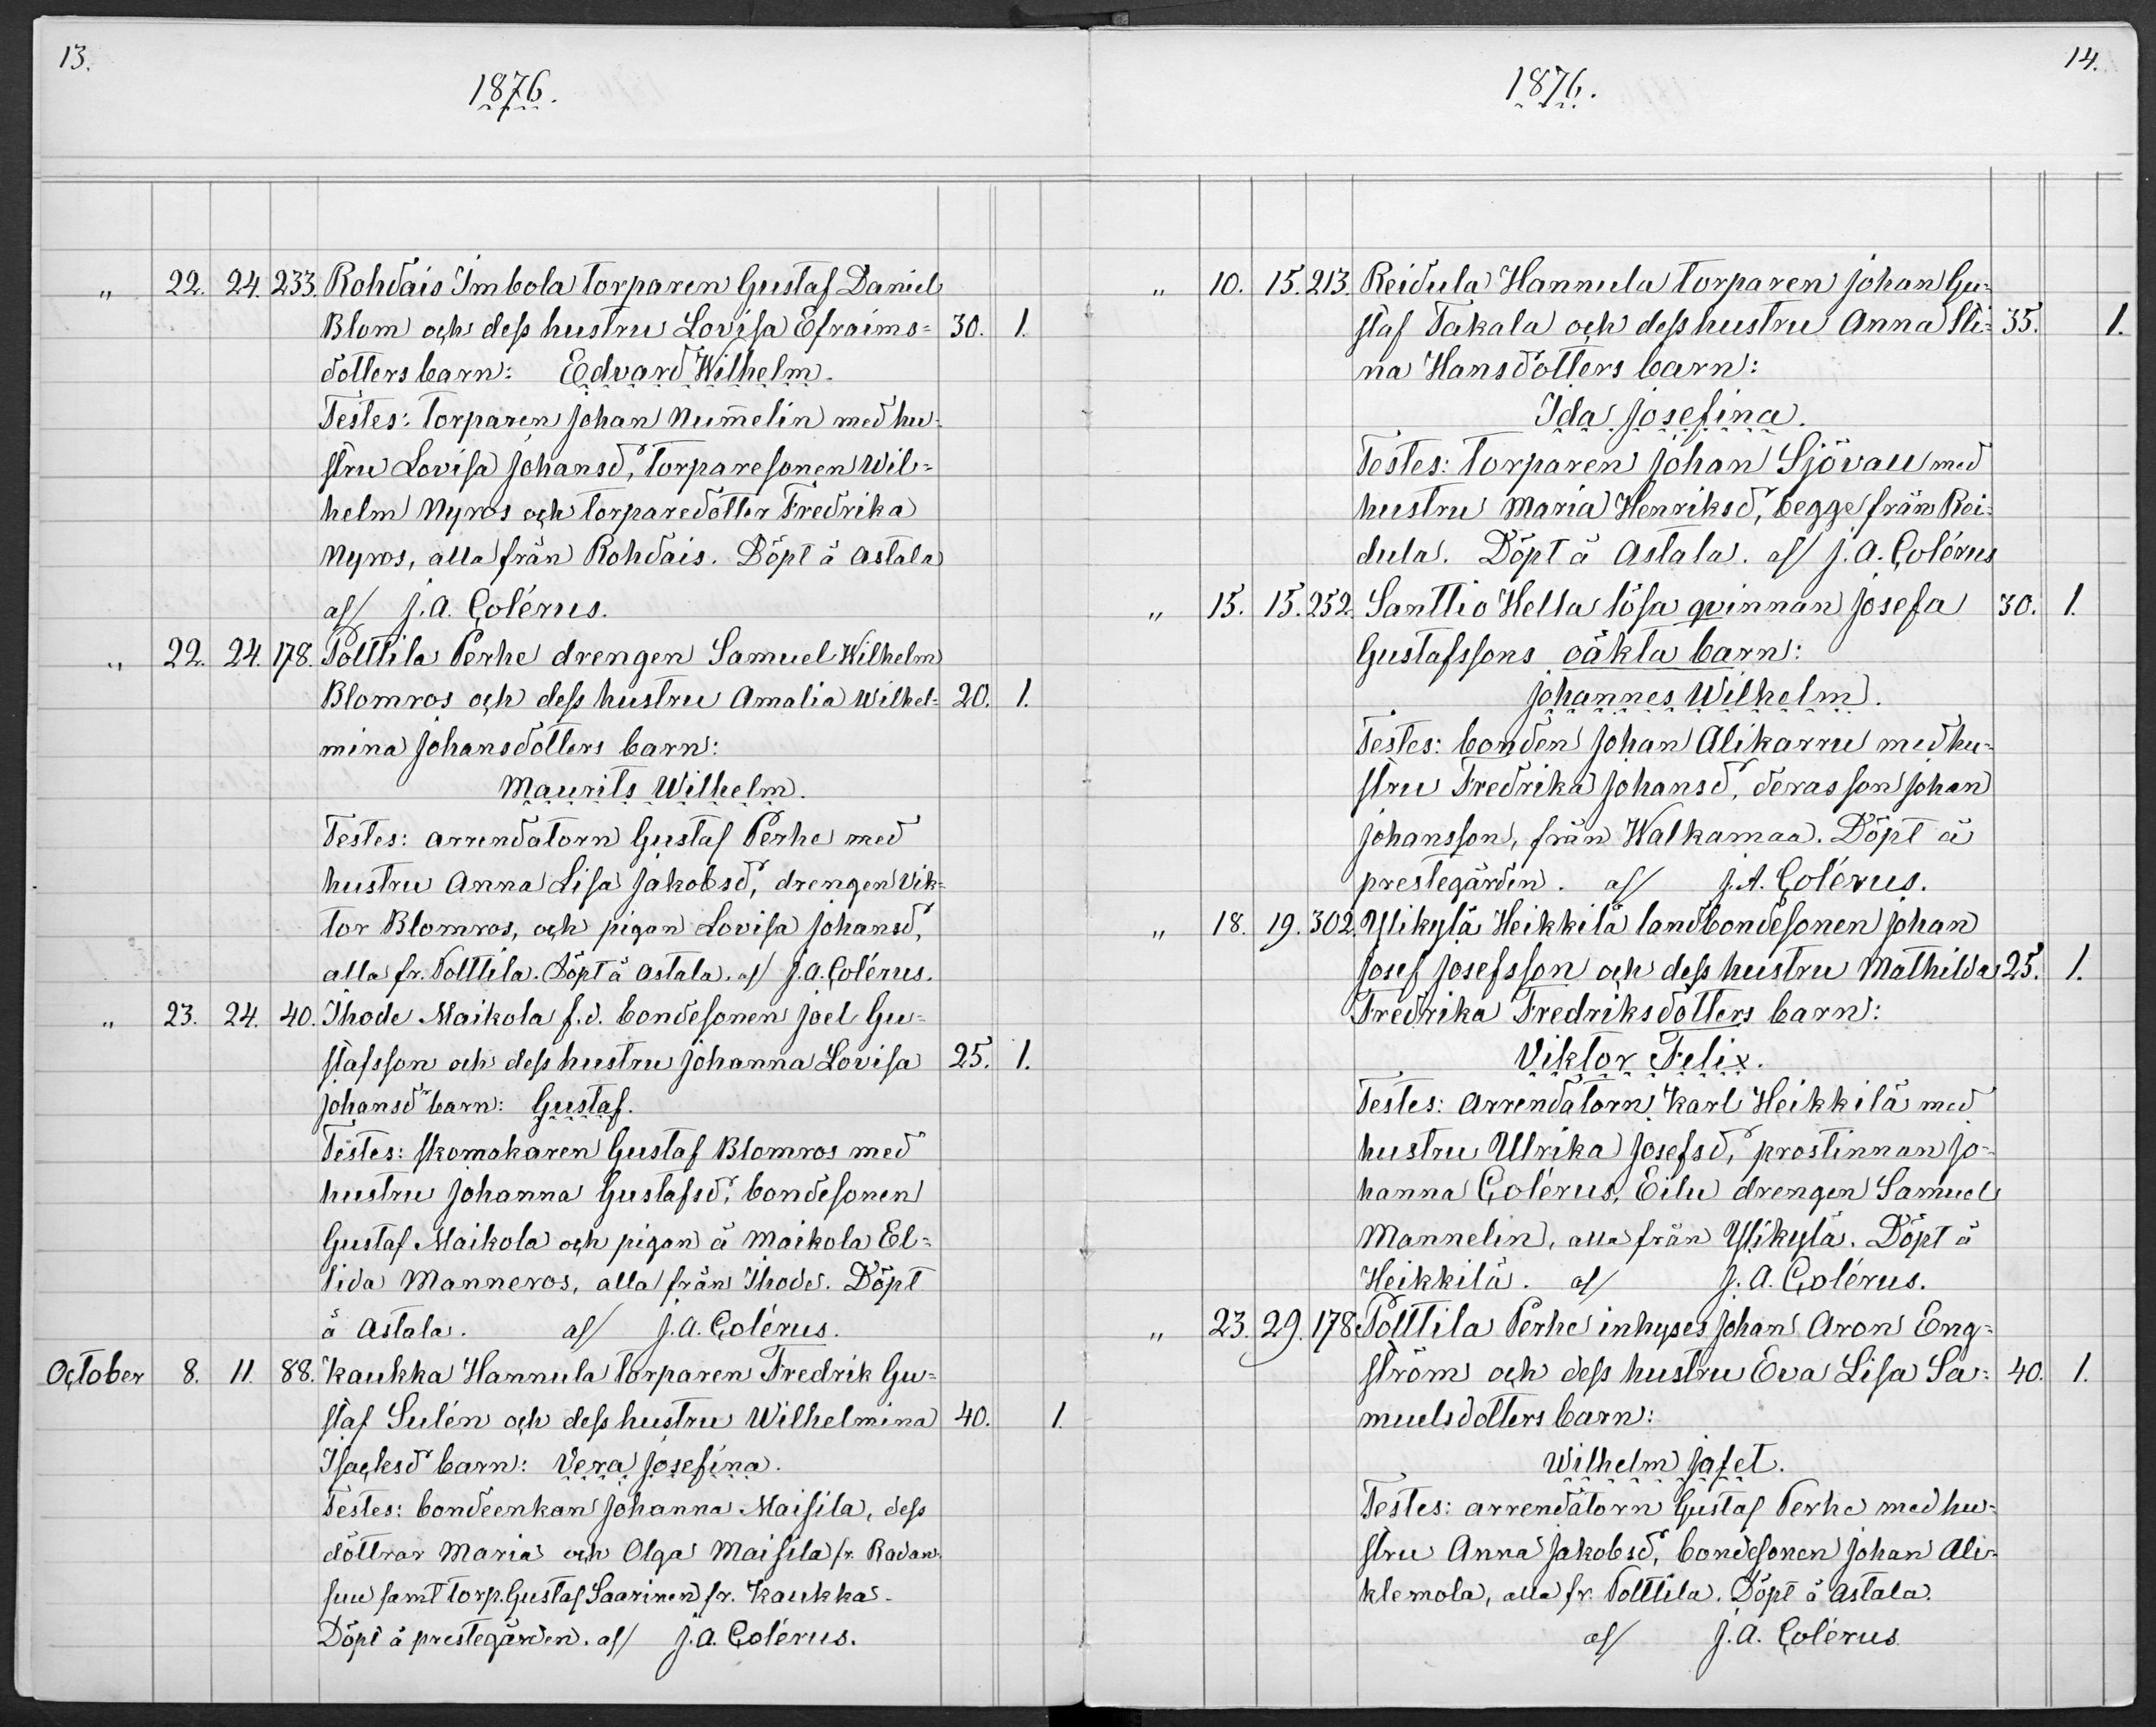 13.
1876.
" 22. 24. 233. Rohdais Imbola torparen Gustaf Daniel
Blom och dess hustru Lovisa Efraims= 30. 1.
dotters barn: Edvard Wilhelm.
Testes: torparen Johan Nummelin med hu=
stru Lovisa Johansdr, torparesonen Wil=
helm Nyros och torparedotter Fredrika
Nyros, alla från Rohdais. Döpt å Astala
af/ J. A. Colérus.
" 22. 24. 178. Polttila Perhe drengen Samuel Wilhelm
Blomros och dess hustru Amalia Wilhel= 20. 1.
mina Johansdotters barn:
Maurits Wilhelm.
Testes: arrendatorn Gustaf Perhe med
hustru Anna Lisa Jakobsdr, drengen Vik=
tor Blomros, och pigan Lovisa Johansdr,
alla fr. Polttila. Döpt å Astala. af/ J. A. Colérus.
" 23. 24. 40. Ihode Maikola f.d. bondesonen Joel Gu=
stafsson och dess hustru Johanna Lovisa 25. 1.
Johansdr barn: Gustaf.
Testes: skomakaren Gustaf Blomros med
hustru Johanna Gustafsdr, bondesonen
Gustaf Maikola och pigan å Maikola El=
lida Manneros, alla från Ihode. Döpt
å Astala. af/ J. A. Colérus.
October 8. 11. 88. Kaukka Hannula torparen Fredrik Gu=
staf Sulén och dess hustru Wilhelmina 40. 1.
Isacksdr barn: Vera Josefina.
Testes: bondeenkan Johanna Maisila, dess
döttrar Maria och Olga Maisila fr. Radan=
suu samt torp. Gustaf Saarinen fr. Kaukka.
Döpt å prestegården. af/ J. A. Colérus.
14.
1876.
" 10. 15. 213. Reidula Hannula torparen Johan Gu=
staf Takala och dess hustru Anna Sti= 35. 1.
na Hansdotters barn:
Ida Josefina.
Testes: torparen Johan Sjövau med
hustru Maria Henriksdr, begge från Rei=
dula. Döpt å Astala. af/ J. A. Colérus
" 15. 15. 252. Santtio Hella lösa qvinnan Josefa 30. 1.
Gustafssons oäkta barn:
Johannes Wilhelm.
Testes: bonden Johan Alikarru med hu=
stru Fredrika Johansdr, deras son Johan
Johansson, från Walkamaa. Döpt å
prestegården. af/ J. A. Colérus.
" 18. 19. 302. Ylikylä Heikkilä landbondesonen Johan
Josef Josefsson och dess hustru Mathilda 25. 1.
Fredrika Fredriksdotters barn:
Viktor Felix.
Testes: Arrendatorn Karl Heikkilä med
hustru Ulrika Josefsdr, prostinnan Jo=
hanna Colérus, Eilu drengen Samuel
Mannelin, alla från Ylikylä. Döpt å
Heikkilä. af/ J. A. Colérus.
" 23. 29. 178. Polttila Perhe inhyses Johan Aron Eng=
ström och dess hustru Eva Lisa Sa= 40. 1.
muelsdotters barn:
Wilhelm Jafet.
Testes: arrendatorn Gustaf Perhe med hu=
stru Anna Jakobsdr, bondesonen Johan Ali=
klemola, alla fr. Polttila. Döpt å Astala.
af/ J. A. Colérus